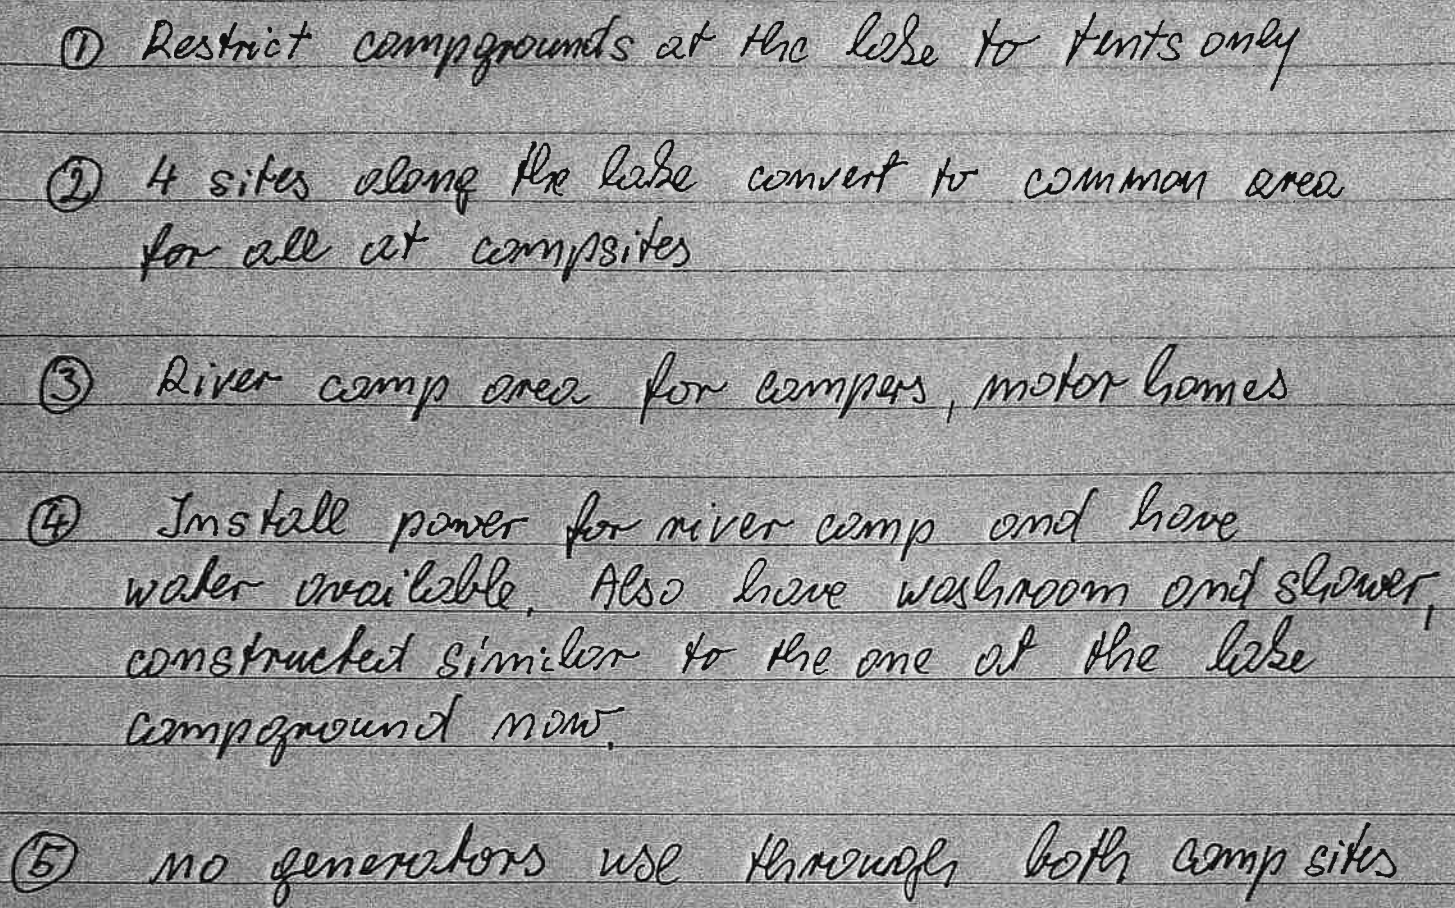 ① Restrict campgrounds at the lake to tents only
② 4 sites along the lake convert to common area
for all at campsites
③ River camp area for campers, motor homes
④ Install power for river camp and have
water available. Also have washroom and shower,
constructed similar to the one at the lake
campground now.
⑤ no generators use through both camp sites